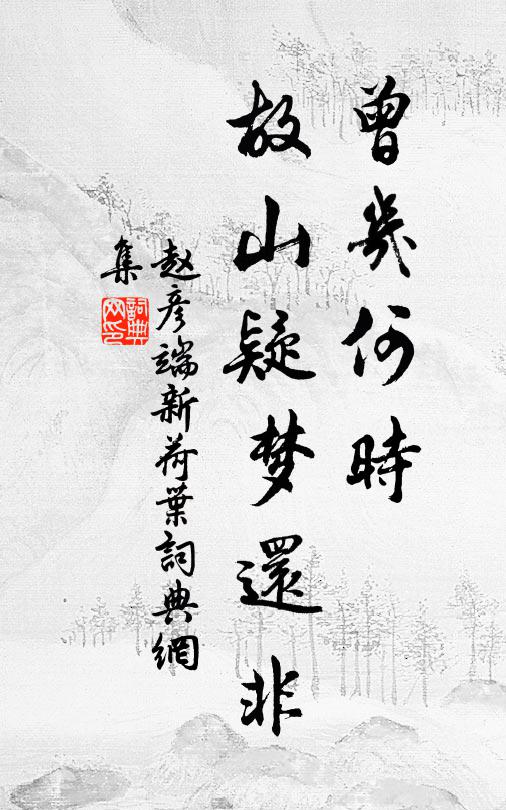 曾幾何時
故山疑梦還非
赵彦端新荷葉詞典網
集
詞典
网印